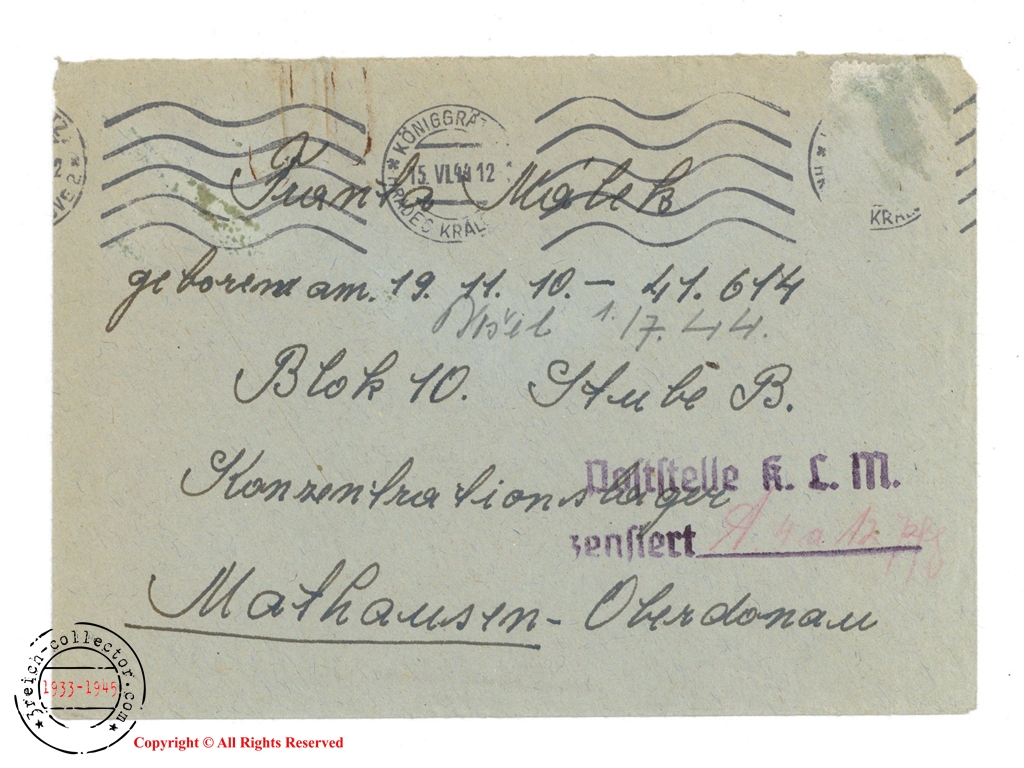 KÖNIGGRÄ
15. VI. 44 12
HRADEC KRÁL
KRÁL
Franta Málek
geboren am. 19. 11. 10. – 41.614
1. /7. 44.
Blok 10. Stube B.
Konzentrationslager
Poststelle K. L. M.
zensiert
Mathausen - Oberdonau
3reich-collector.com
1933-1945
Copyright © All Rights Reserved